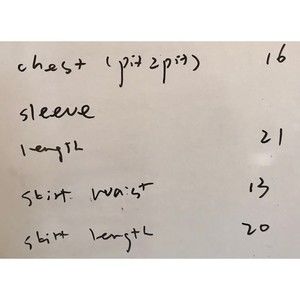 chest (pit2pit) 16
sleeve
length 21
skirt waist 13
skirt length 20